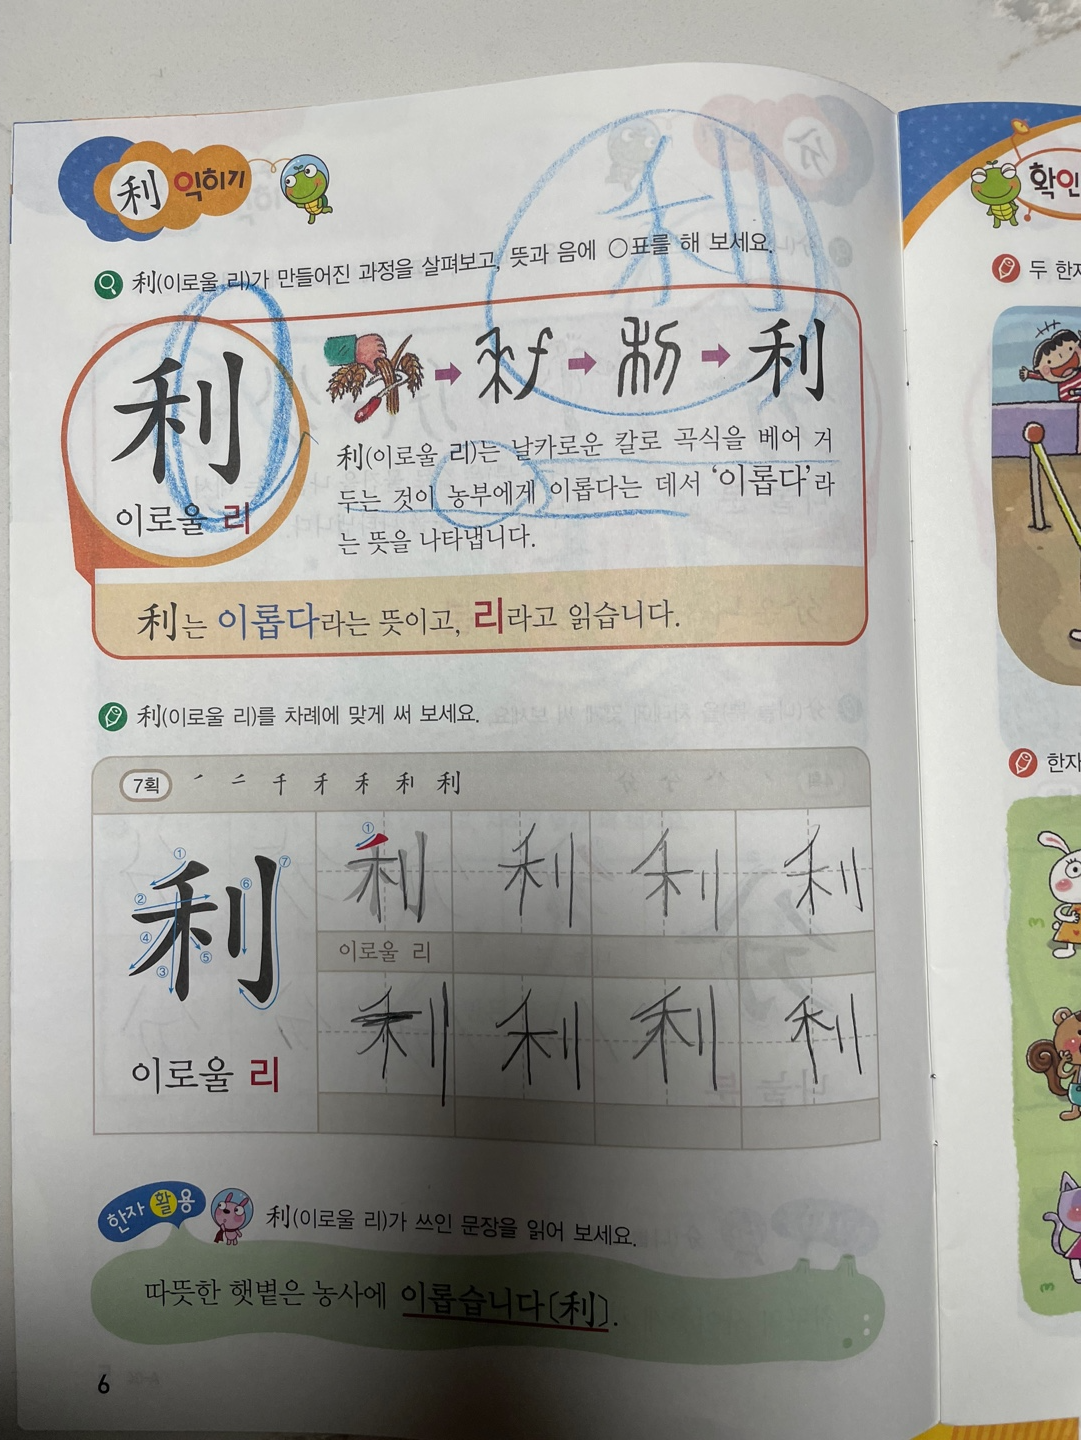 利 익히기
利(이로울 리)가 만들어진 과정을 살펴보고, 뜻과 음에 ○표를 해 보세요.
利
利
이로울 리
利
利(이로울 리)는 날카로운 칼로 곡식을 베어 거
두는 것이 농부에게 이롭다는 데서 '이롭다'라
는 뜻을 나타냅니다.
利는 이롭다라는 뜻이고, 리라고 읽습니다.
利(이로울 리)를 차례에 맞게 써 보세요.
7획 ㇒ 二 千 禾 禾 利 利
利
① ② ③ ④ ⑤ ⑥ ⑦
이로울 리
① 利 利 利 利
이로울 리
利 利 利 利
한자 활용
利(이로울 리)가 쓰인 문장을 읽어 보세요.
따뜻한 햇볕은 농사에 이롭습니다[利].
6
확인
두 한
한자